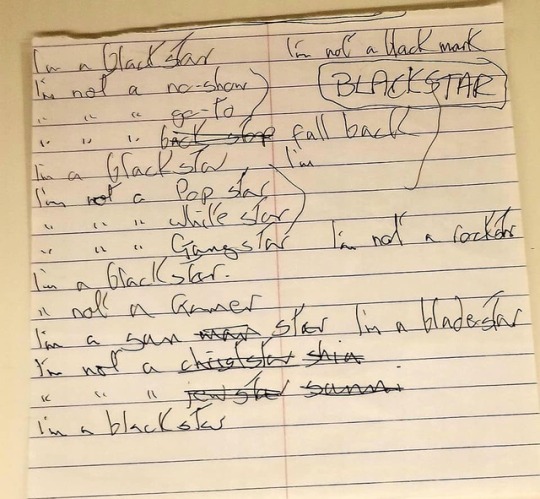 I'm a blackstar I'm not a black mark
I'm not a no-show BLACKSTAR
" " " go-to
" " " back stop fall back
I'm a blackstar I'm
I'm not a Pop star
" " " white star
" " " Gangstar I'm not a rockstar
I'm a blackstar.
" not a Gamer
I'm a sun man star I'm a bladestar
I'm not a christstar shia
" " " jewstar sunni
I'm a blackstar